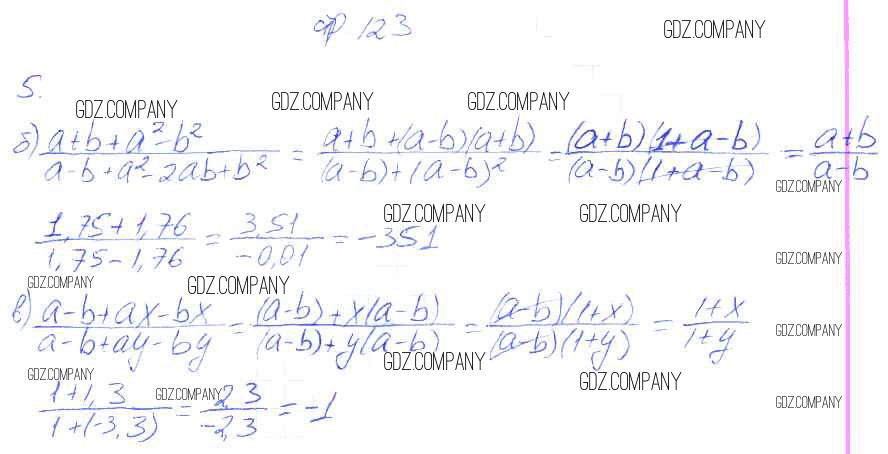 стр 123
GDZ.COMPANY
5.
GDZ.COMPANY GDZ.COMPANY GDZ.COMPANY
б) (a+b+a²-b²)/(a-b+a²-2ab+b²) = (a+b+(a-b)(a+b))/((a-b)+(a-b)²) = ((a+b)(1+a-b))/((a-b)(1+a-b)) = (a+b)/(a-b)
GDZ.COMPANY
GDZ.COMPANY GDZ.COMPANY
(1,75+1,76)/(1,75-1,76) = 3,51/(-0,01) = -351
GDZ.COMPANY
GDZ.COMPANY GDZ.COMPANY
в) (a-b+ax-bx)/(a-b+ay-by) = ((a-b)+x(a-b))/((a-b)+y(a-b)) = ((a-b)(1+x))/((a-b)(1+y)) = (1+x)/(1+y)
GDZ.COMPANY
GDZ.COMPANY
GDZ.COMPANY GDZ.COMPANY
(1+1,3)/(1+(-3,3)) = 2,3/(-2,3) = -1
GDZ.COMPANY
GDZ.COMPANY